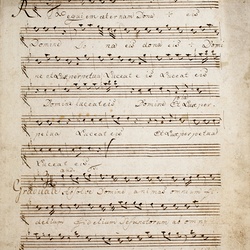 Requiem aeternam Dona eis
Domine Do na eis dona eis Domi
ne et Lux perpetua Luceat eis Luceat eis
Domine luceat eis Domine Et Lux per
petua Luceat eis Et Lux perpetua
Luceat eis
Graduale Absolve Domine animas omnium fi
delium fidelium defunctorum ab omni